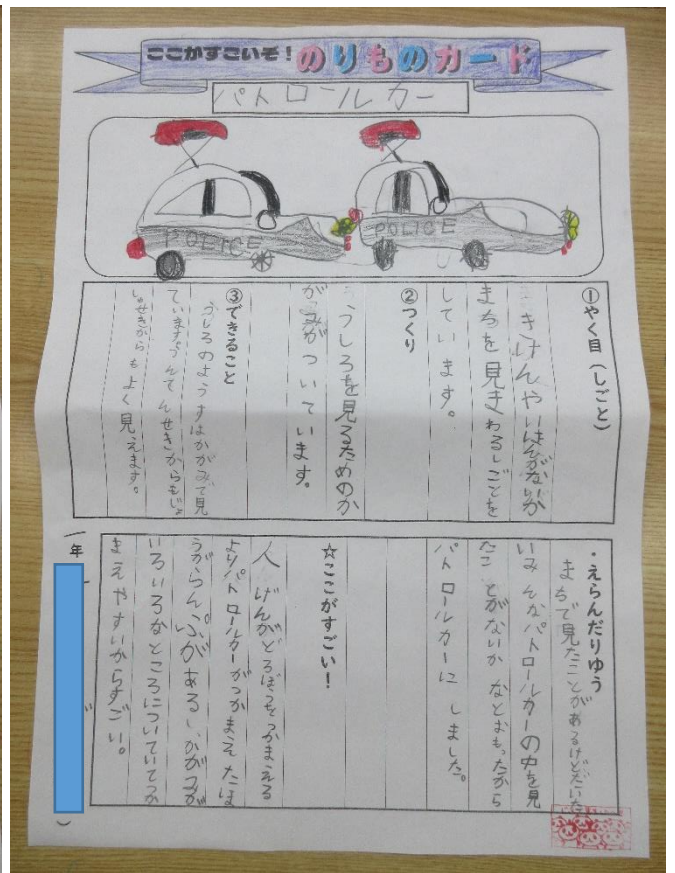 ここがすごいぞ！のりものカード
パトロールカー
POLICE
POLICE
①やく目（しごと）
きけんやいはんがないか
まちを見まわるしごとを
しています。
②つくり
うしろを見るためのか
がみがついています。
③できること
うしろのようすはかがみで見
ています。うんてんせきからもじょ
しゅせきからもよく見えます。
・えらんだりゆう
まちで見たことがあるけどだいた
いみんなパトロールカーの中を見
たことがないかなとおもったから
パトロールカーにしました。
☆ここがすごい！
人げんがどろぼうをつかまえる
よりパトロールカーがつかまえたほ
うがらんぷがあるしかがみが
いろいろなところについていてつか
まえやすいからすごい。
一年